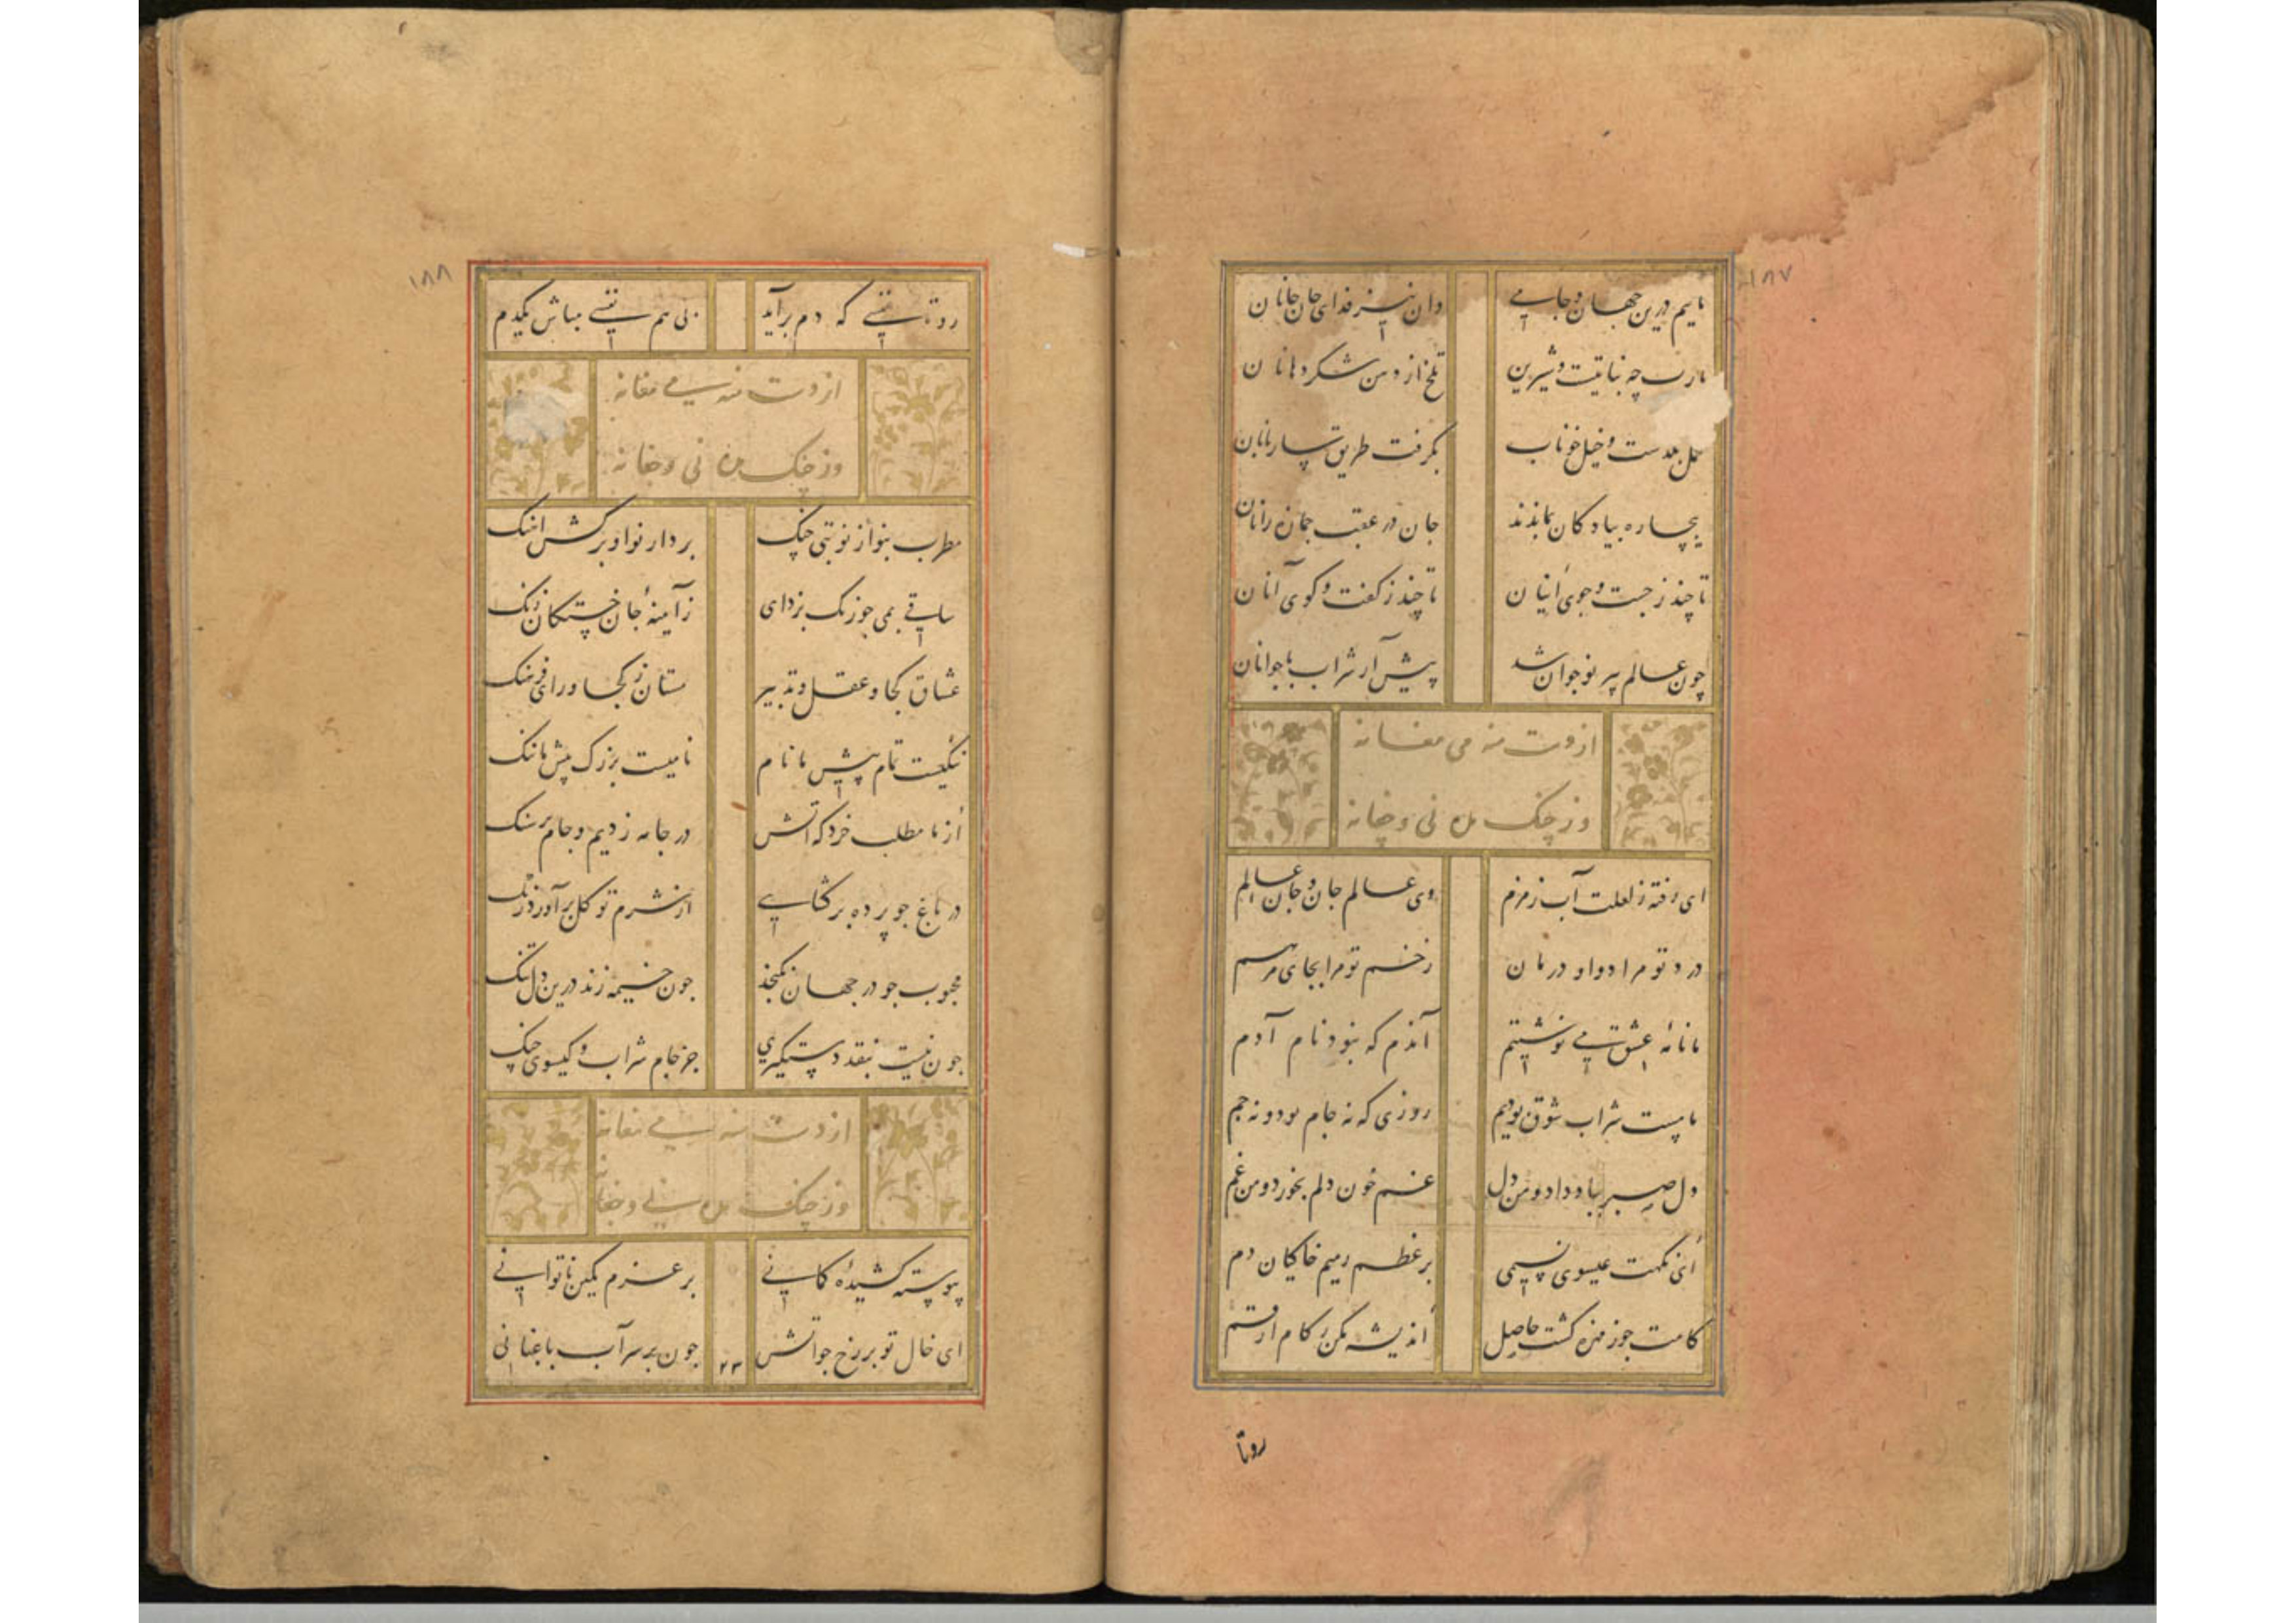 ۱۸۷
مایم درین جهان و جامی دان نیز فدای جان جانان
یارب چه نباتیست و شیرین تلخ از دهن شکردهانان
محمل بگذشت و خیل خوناب بگرفت طریق ساربانان
بیچاره پیادگان بماندند جان در عقب جمازه رانان
تا چند ز جست و جوی اینان تا چند ز گفت و گوی آنان
چون عالم پیر نوجوان شد پیش آر شراب با جوانان
از دست منه می مغانه
وز چنک مده نی و چغانه
ای رفته ز لعلت آب زمزم وی عالم جان و جان عالم
درد تو مرا دوا و درمان زخم تو مرا بجای مرهم
ما نامهٔ عشق می نوشتیم آندم که نبود نام آدم
ما مست شراب شوق بودیم روزی که نه جام بود و نه جم
دل صبر بباد داد و من دل غم خون دلم بخورد و من غم
ای نکهت عیسوی نسیمی بر عظم رمیم خاکیان دم
کامت چو ز مزه کشت حاصل اندیشه مکن ز کام ارقم
رو تا
۱۸۸
رو تا نفسی که دم برآید بی هم نفسی مباش یکدم
از دست منه می مغانه
وز چنک مده نی و چغانه
مطرب بنواز نوبتی چنک بردار نوا و برکش آهنک
ساقی بمی چو زنک بزدای ز آینهٔ جان خستکان زنک
عشاق کجا و عقل و تدبیر مستان ز کجا و رای و فرهنک
ننکیست تمام پیش ما نام نامیست بزرک پیش ما ننک
از ما مطلب خرد که آتش در جامه زدیم و جام بر سنک
در باغ چو پرده برکشایی از شرم تو کل برآورد رنک
محبوب چو در جهان نکنجد چون خیمه زند درین دل تنک
چون نیست بنقد دستکیری جز جام شراب و کیسوی چنک
از دست منه می مغانه
وز چنک مده نی و چغانه
پیوسته کشیدهٔ کمانی بر عزم کمین ناتوانی
ای خال تو بر رخ چو آتش چون بر سر آب باغبانی
۲۳